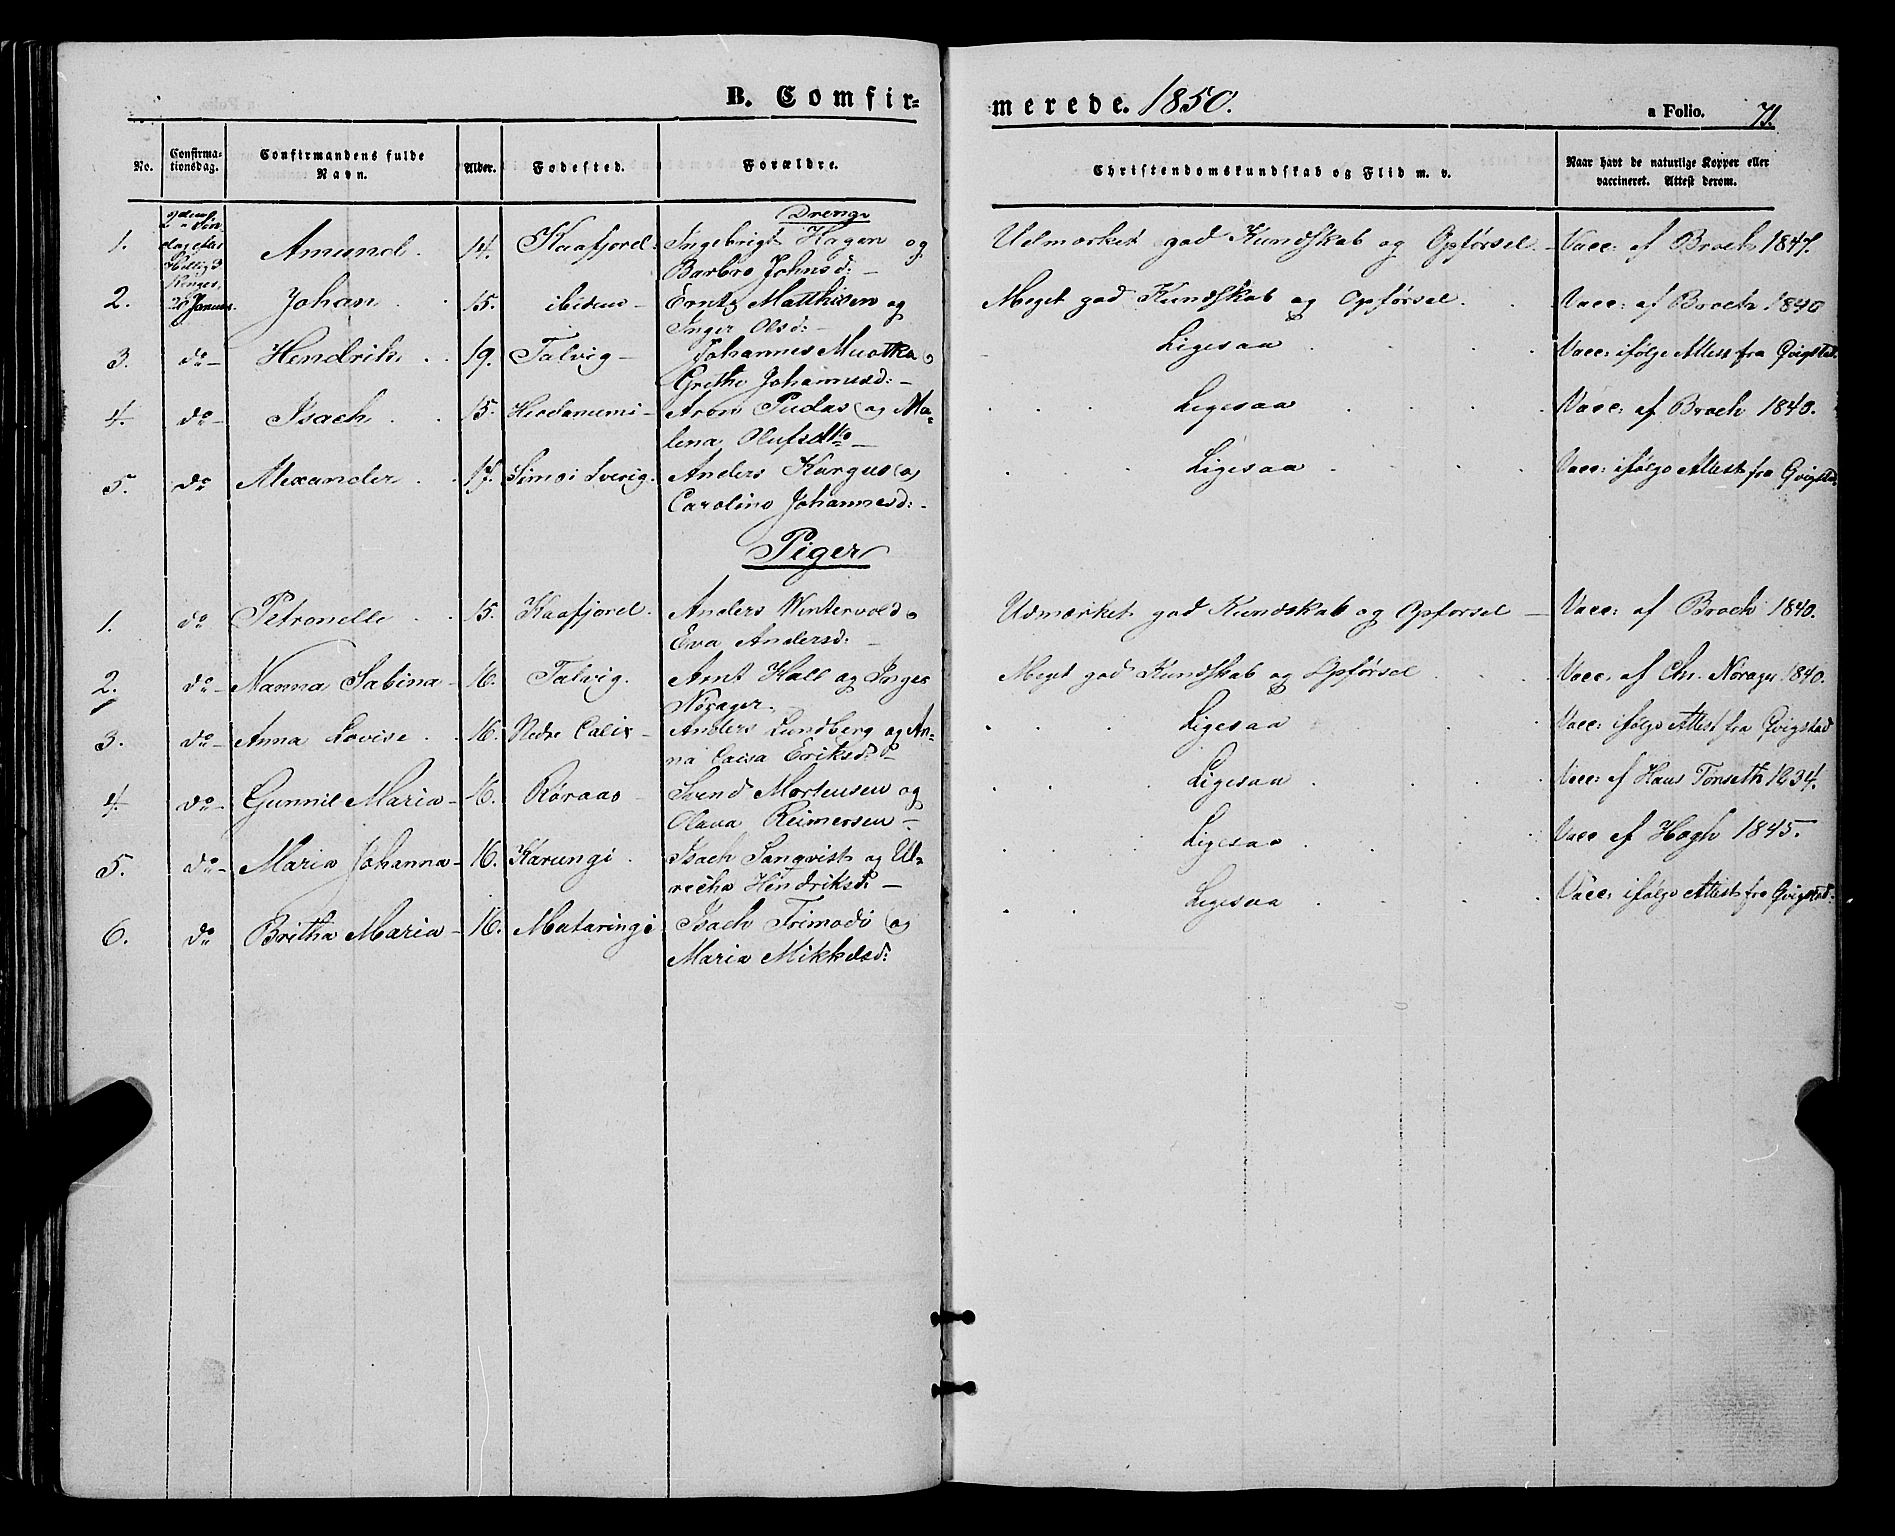 B. Comfir=
merede. 1850.
a Folio. 71.
No. Confirma-tionsdag. Confirmandens fulde Navn. Alder. Fodested. Forældre. Christendomskundskab og Flid m. v. Naar havt de naturlige Kopper eller vaccineret. Attest derom.
Drenge
1. Amund 14. Kaafjord. Ingebrigt Hagen og Udmærket god Kundskab og Opførsel Vacc: af Broch 1847.
Barbro Johnsd: —
2. Johan 15. ibidem — Erntz Matthisen og Meget god Kundskab og Opførsel. Vacc: af Broch 1840
Inger Olsd: —
3. do — Hendrik 19. Talvig — Johannes Muotka o Ligesaa Vacc: ifølge Attest fra Qvigstad.
Grethe Johannesd: —
4. do — Isach 15. Aron Pudas og Ma- Ligesaa Vacc: af Broch 1840.
lena Olufsd
5. do Alexander 17. Anders Kargus og Ligesaa Vacc: ifølge Attest fra Qvigstad.
Caroline Johannesd: —
Piger
1. do Petronelle 15. Kaafjord. Anders Wintervold o Udmærket god Kundskab og Opførsel — Vacc: af Broch 1840.
Eva Andersd: —
2. do — Nanna Sabina — 16. Talvig. Arnt Hall og Inger Meget god Kundskab og Opførsel Vacc: af Chr. Norager 1840.
Norager.
3. do — Anna Lovise 16. Nedre Calix — Anders Lundberg og An- Ligesaa Vacc: ifølge Attest fra Qvigstad
na Caisa Eriksd: —
4. do — Gunnil Maria — 16. Røraas — Svend Mortensen og Ligesaa Vacc: af Hans Tønseth 1834.
Olava Reimersen —
5. do — Maria Johanna — 16. Karungi. Isach Sanqvist og Ul- Ligesaa Vacc af Hogh 1845.
richa Hendriksd: —
6. do Britha Maria — 16. Mataringi Isach Frimodi og Ligesaa Vacc: ifølge Attest fra Qvigstad.
Maria Mikkelsd: